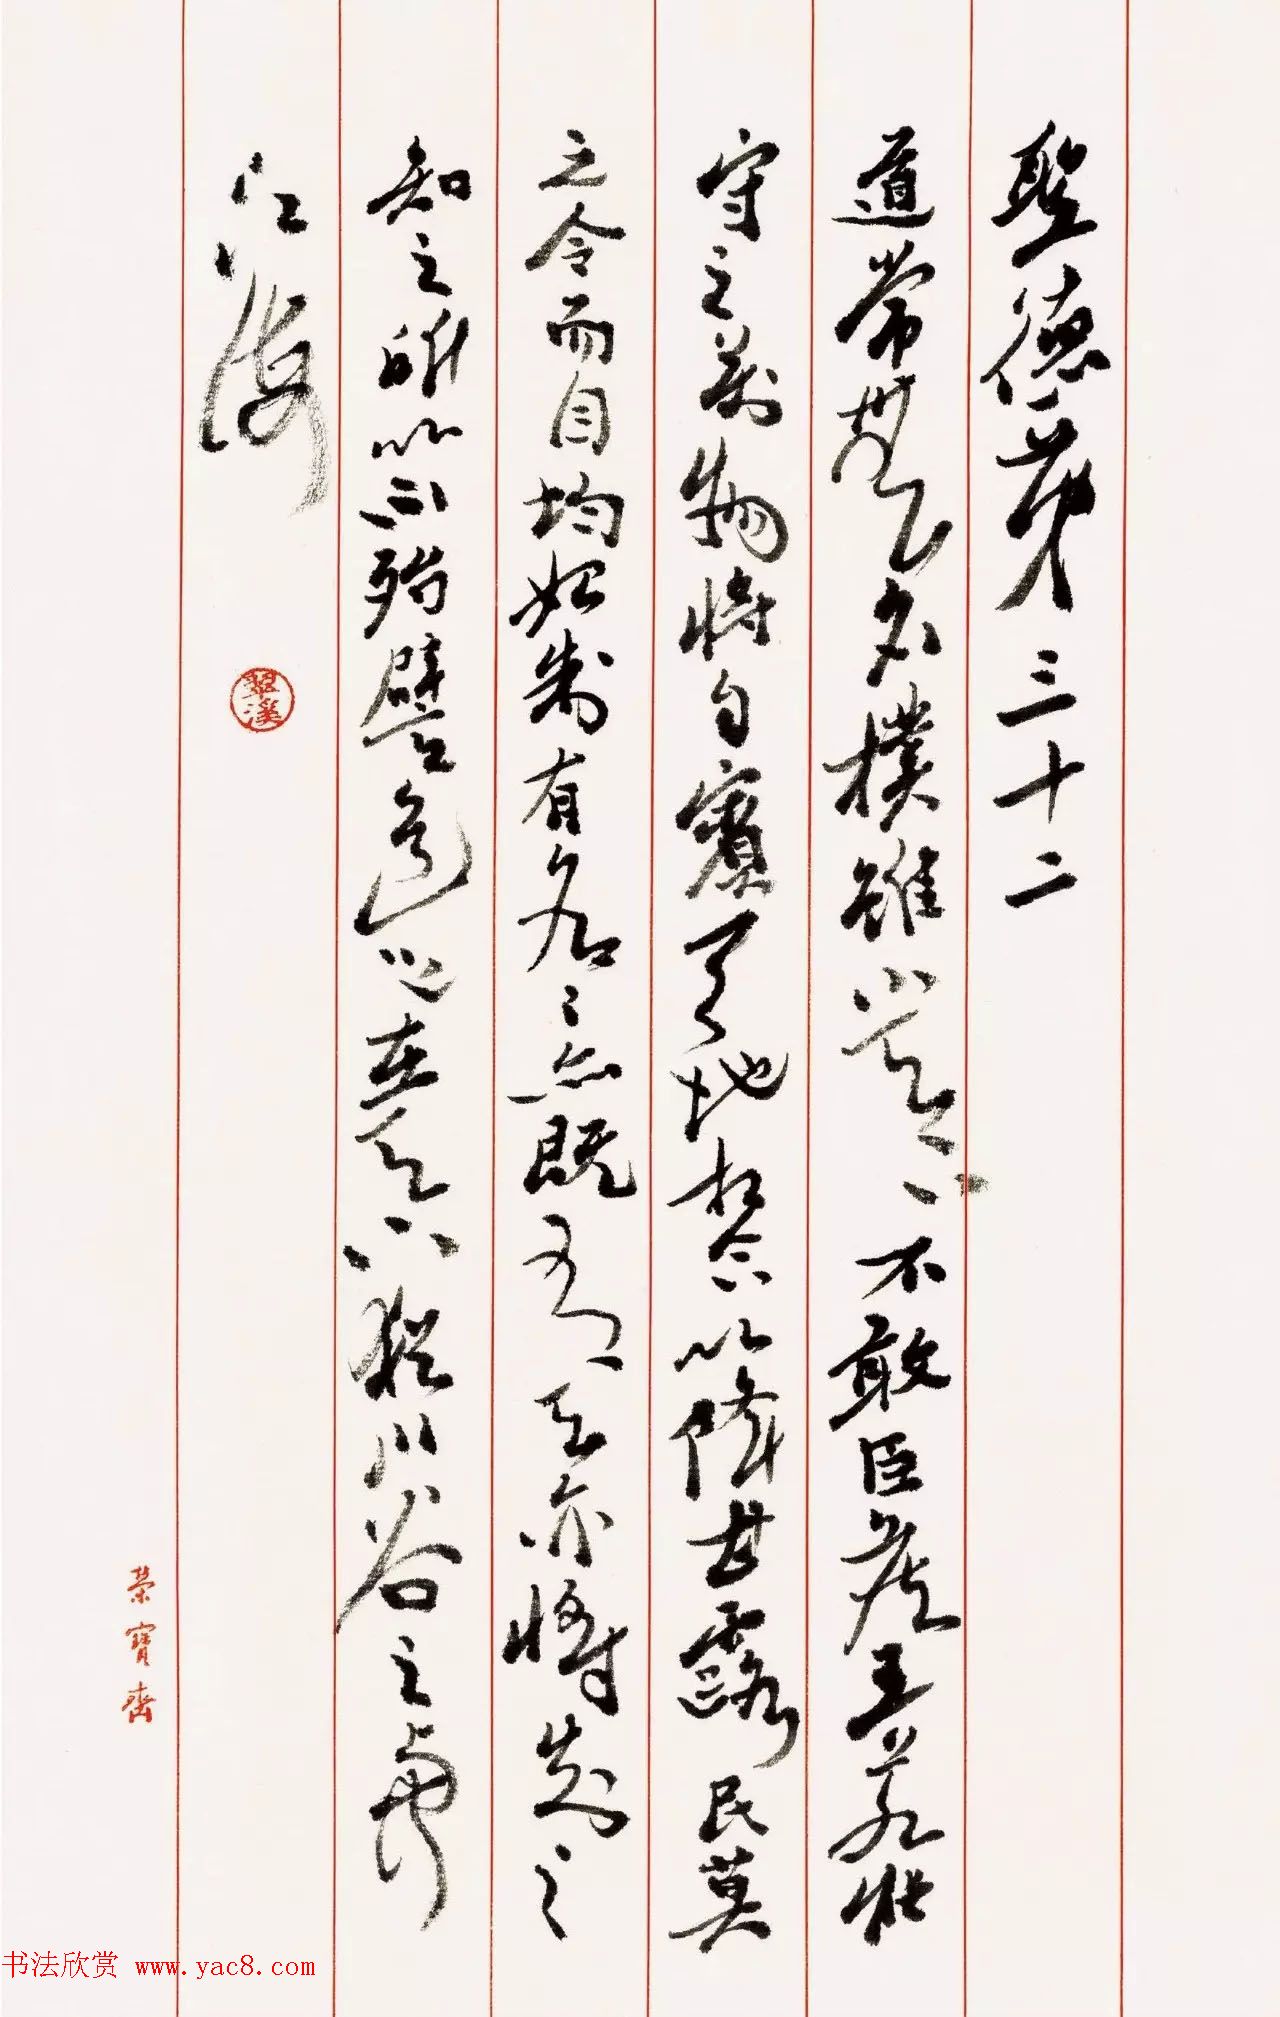 聖德第三十二
道常無名樸雖小天下不敢臣侯王若能
守之萬物將自賓天地相合以降甘露民莫
之令而自均始制有名〻亦既有天亦將知之
知之所以不殆譬道之在天下猶川谷之與
江海
榮寶齋
书法欣赏 www.yac8.com